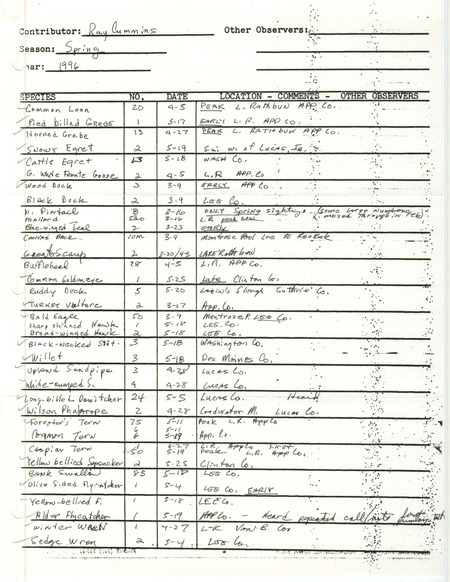 Contributor: Ray Cummins Other Observers:
Season: Spring
Year: 1996
SPECIES NO. DATE LOCATION - COMMENTS - OTHER OBSERVERS
Common Loon 20 4-5 PEAK L. Rathbun APP Co.
Pied billed GREBE 1 3-17 EARLY L.R. APP Co.
Horned Grebe 13 4-27 PEAK L. RATHBUN APP Co.
Snowy Egret 2 5-19 5 mi. W. of Lucas, IA.
Cattle Egret 13 5-18 WASH Co.
G. White Fronte Goose 2 4-5 L.R APP Co.
Wood Duck 3 3-9 EARLY APP Co
Black Duck 2 3-9 LEE Co
N. Pintail 8 3-16 ONLY Spring sighting (some large numbers moved through in Feb)
mallard 3-16 L.R.
Blue-winged Teal 2 3-23 EARLY
CANVAS BACK 3-9 Montrose Pool LEE TO Keokuk
Greater Scaup 2 LAKE Rathbun
Bufflehead 28 4-5 L.R. APP Co
Common Goldeneye 1 5-25 Late Clinton Co.
Ruddy Duck 5 5-20 Slough Guthrie Co.
Turkey Vulture 2 3-17 App. Co.
Bald Eagle 50 3-9 Montrose P. LEE CO
Sharp shinned Hawk 1 5-18 LEE. Co.
Broad-winged Hawk 2 5-18 LEE Co.
Black-Necked Stilt. 3 5-18 Washington Co.
Willet 3 5-18 Des Moines Co.
Upland Sandpiper 3 4-28 Lucas Co.
White-rumped S. 4 4-28 Lucas Co.
Long-billed Dowitcher 24 5-5 Lucas Co. Heard
Wilson Phalarope 2 4-28 M. Lucas Co.
Forester's Tern 75 5-11 Peak L.R. App Co
Common Tern 6 5-11 5-19 App. Co.
Caspian Tern 50 4-27 5-19 L.R. App Co Peak L.R. App Co.
Yellow bellied Sapsucker 2 5-25 Clinton Co.
BANK Swallow 5-18 LEE Co.
Olive Sided Flycatcher 1 5-4 LEE Co. EARLY
Yellow-bellied F. 1 5-18 LEE Co.
Alder Flycatcher 1 5-19 APP Co - Heard repeated call/note
Winter WREN 1 4-27 L-R Van B. Co
Sedge Wren 2 5-4 LEE Co.